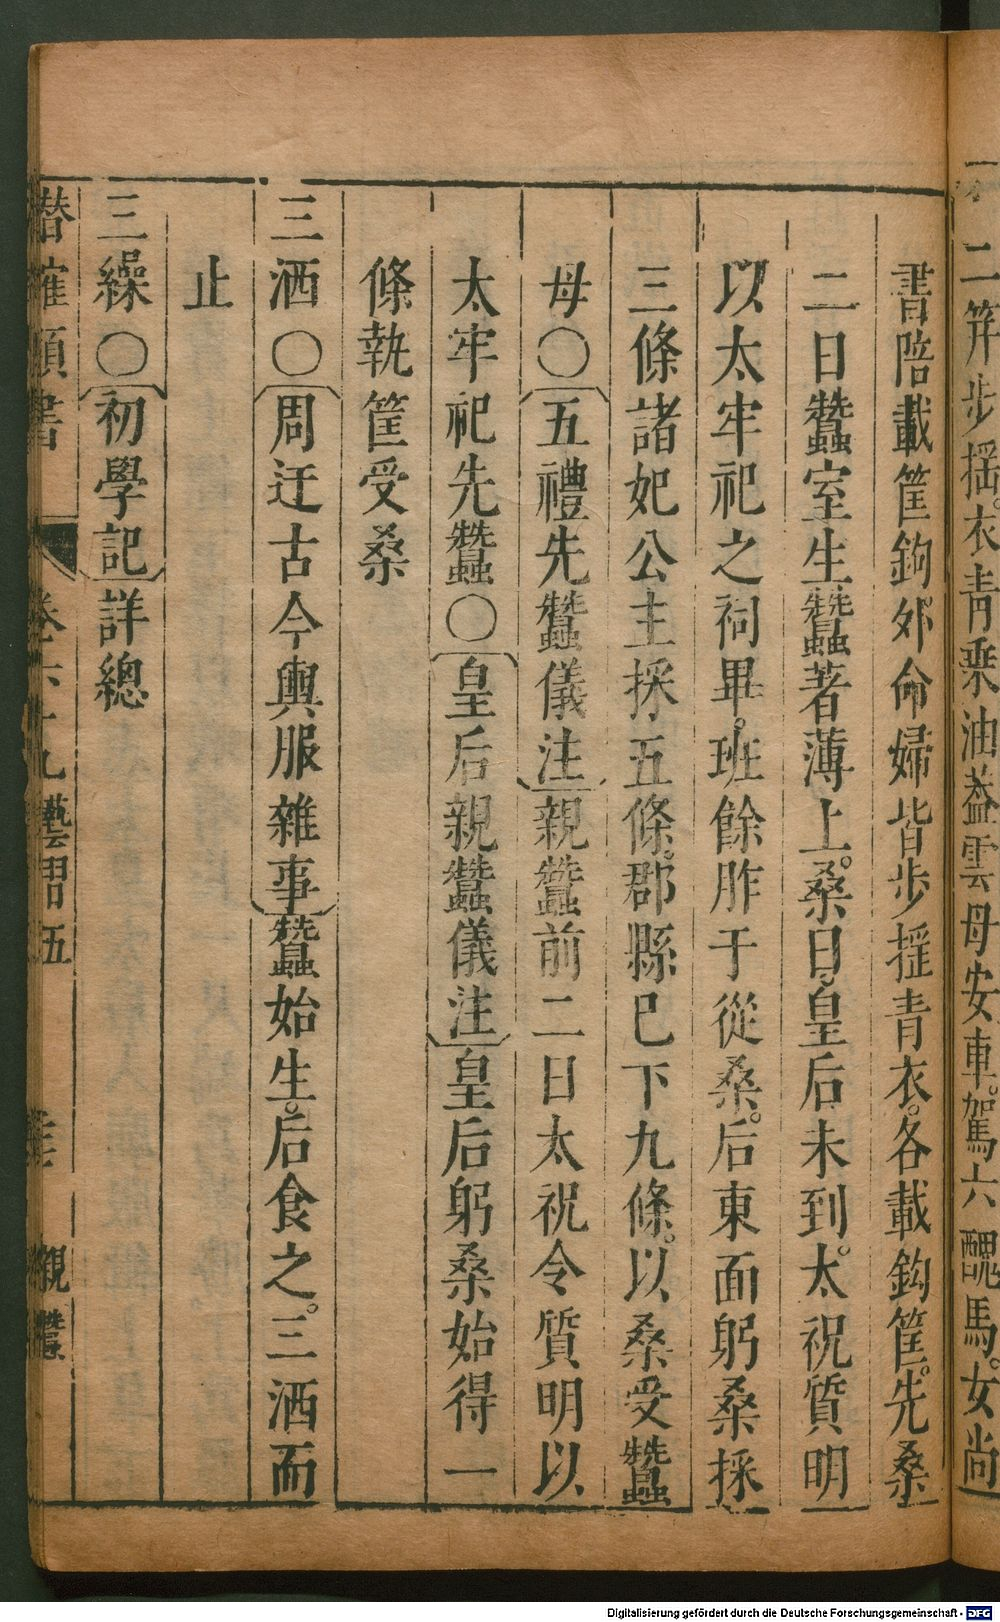 二筓步摇衣青乘油葢雲母安車駕六醜馬女尚
書陪載筐鉤外命婦皆步揺青衣各載鉤筐先桑
二日蠶室生蠶著薄上桑日皇后未到太祝質明
以太牢祀之祠畢班餘胙于從桑后東面躬桑採
三條諸妃公主採五條郡縣巳下九條以桑受蠶
母〇五禮先蠶儀注親蠶前二日太祝令質明以
太牢祀先蠶〇皇后親蠶儀注皇后躬桑始得一
條執筐受桑
三洒〇周迁古今輿服雜事蠶始生后食之三洒而
止
三繰〇初學記詳總
潛確類書 卷六十九藝習五 親蠶
Digitalisierung gefördert durch die Deutsche Forschungsgemeinschaft - DFG